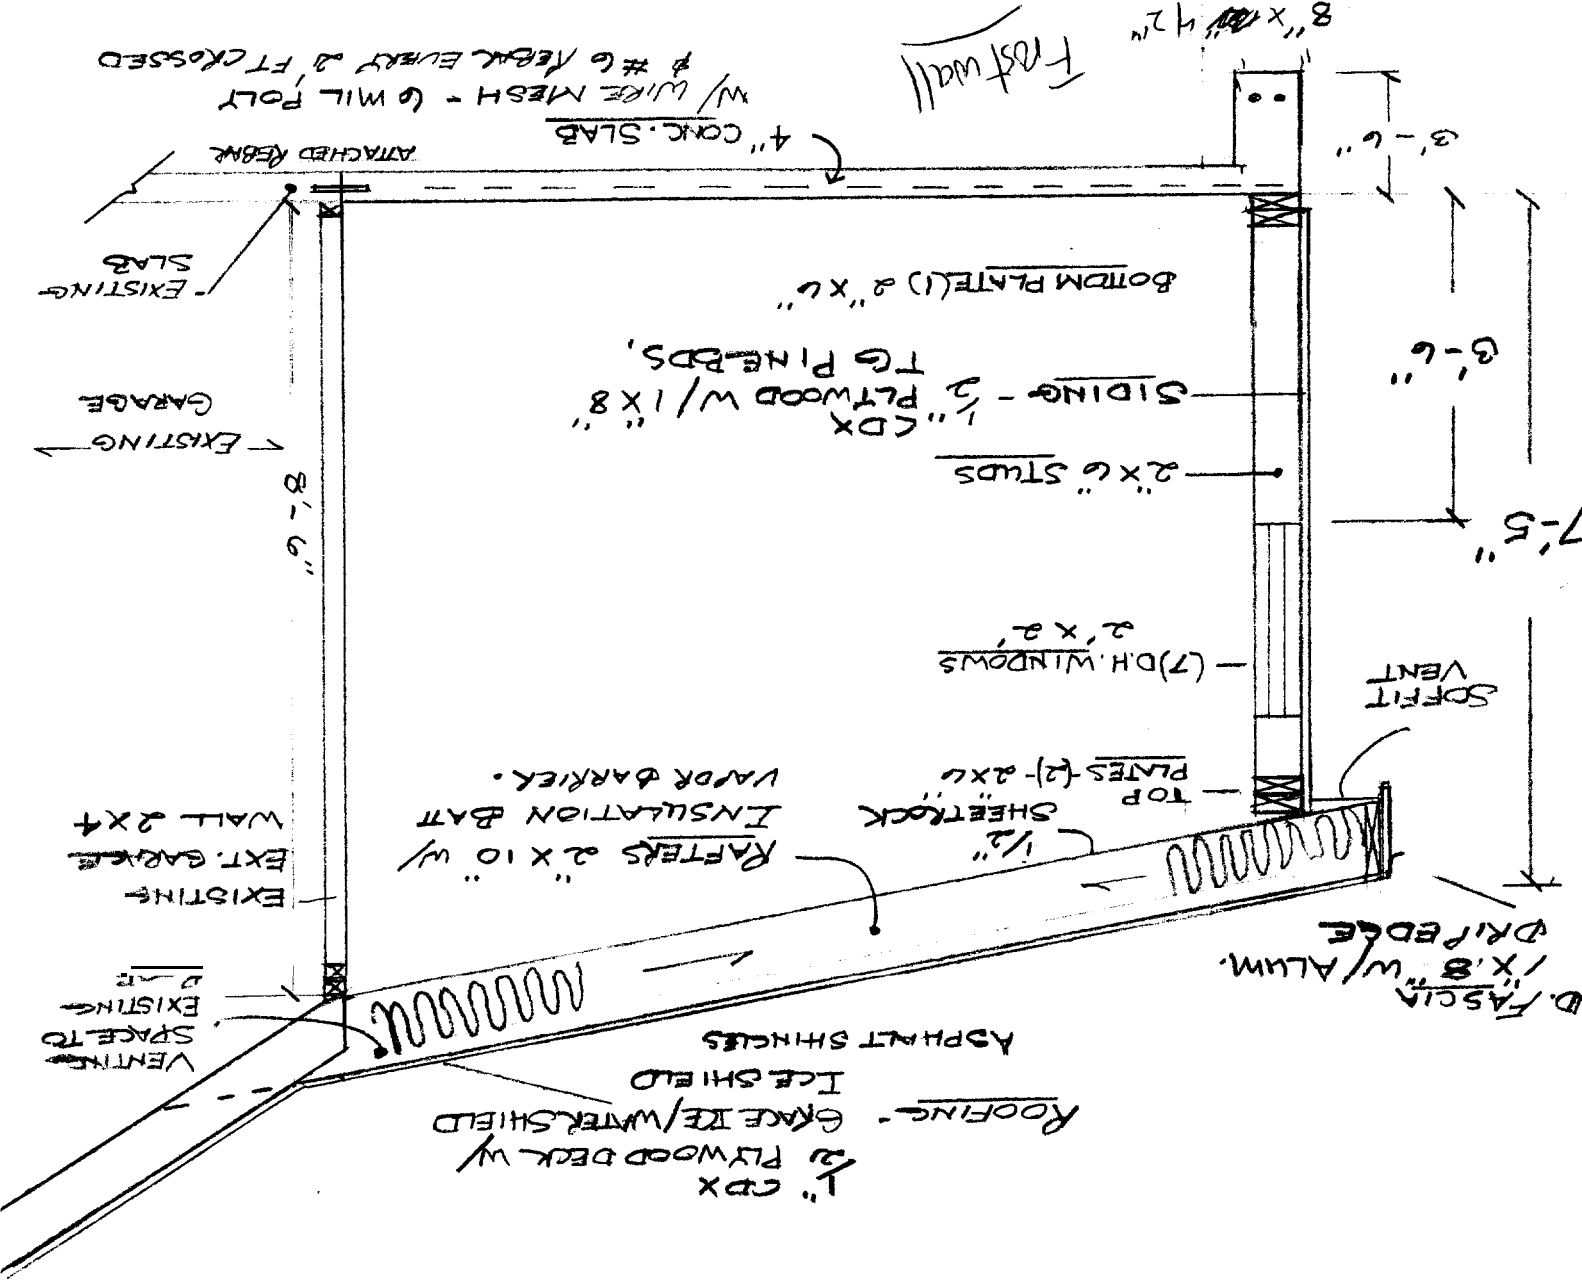 1/2" CDX
PLYWOOD DECK W/
ROOFING - GRACE ICE/WATER SHIELD
ICE SHIELD
ASPHALT SHINGLES
VENTING
SPACE TO
EXISTING
D. FASCIA
1"X 8" W/ ALUM.
DRIP EDGE
EXISTING
EXT. GARAGE
WALL 2X4
RAFTERS 2"X 10" W/
INSULATION BATT
VAPOR BARRIER.
1/2"
SHEETROCK
TOP
PLATES -(2)- 2"X6"
SOFFIT
VENT
(7) D.H. WINDOWS
2' X 2'
7'-5"
8'-6"
2"X 6" STUDS
← EXISTING
GARAGE
SIDING - 1/2" CDX
PLYWOOD W/ 1"X8"
TG PINE BDS,
3'-6"
BOTTOM PLATE (1) 2"X6"
- EXISTING
SLAB
ATTACHED REBAR
3'-6"
4" CONC. SLAB
W/ WIRE MESH - 6 MIL POLY
& #6 REBAR EVERY 2' FT CROSSED
Frost wall
8" X 42"